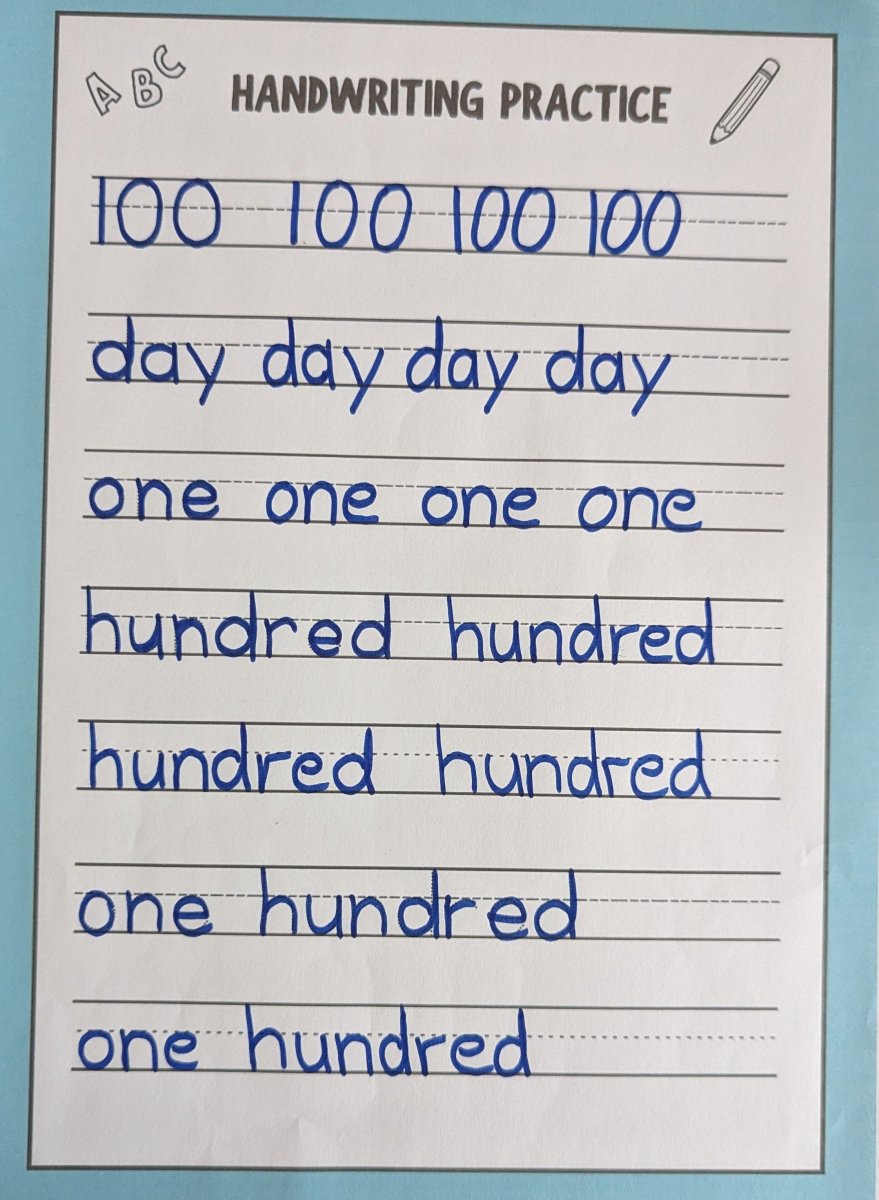 ABC HANDWRITING PRACTICE
100 100 100 100
day day day day
one one one one
hundred hundred
hundred hundred
one hundred
one hundred